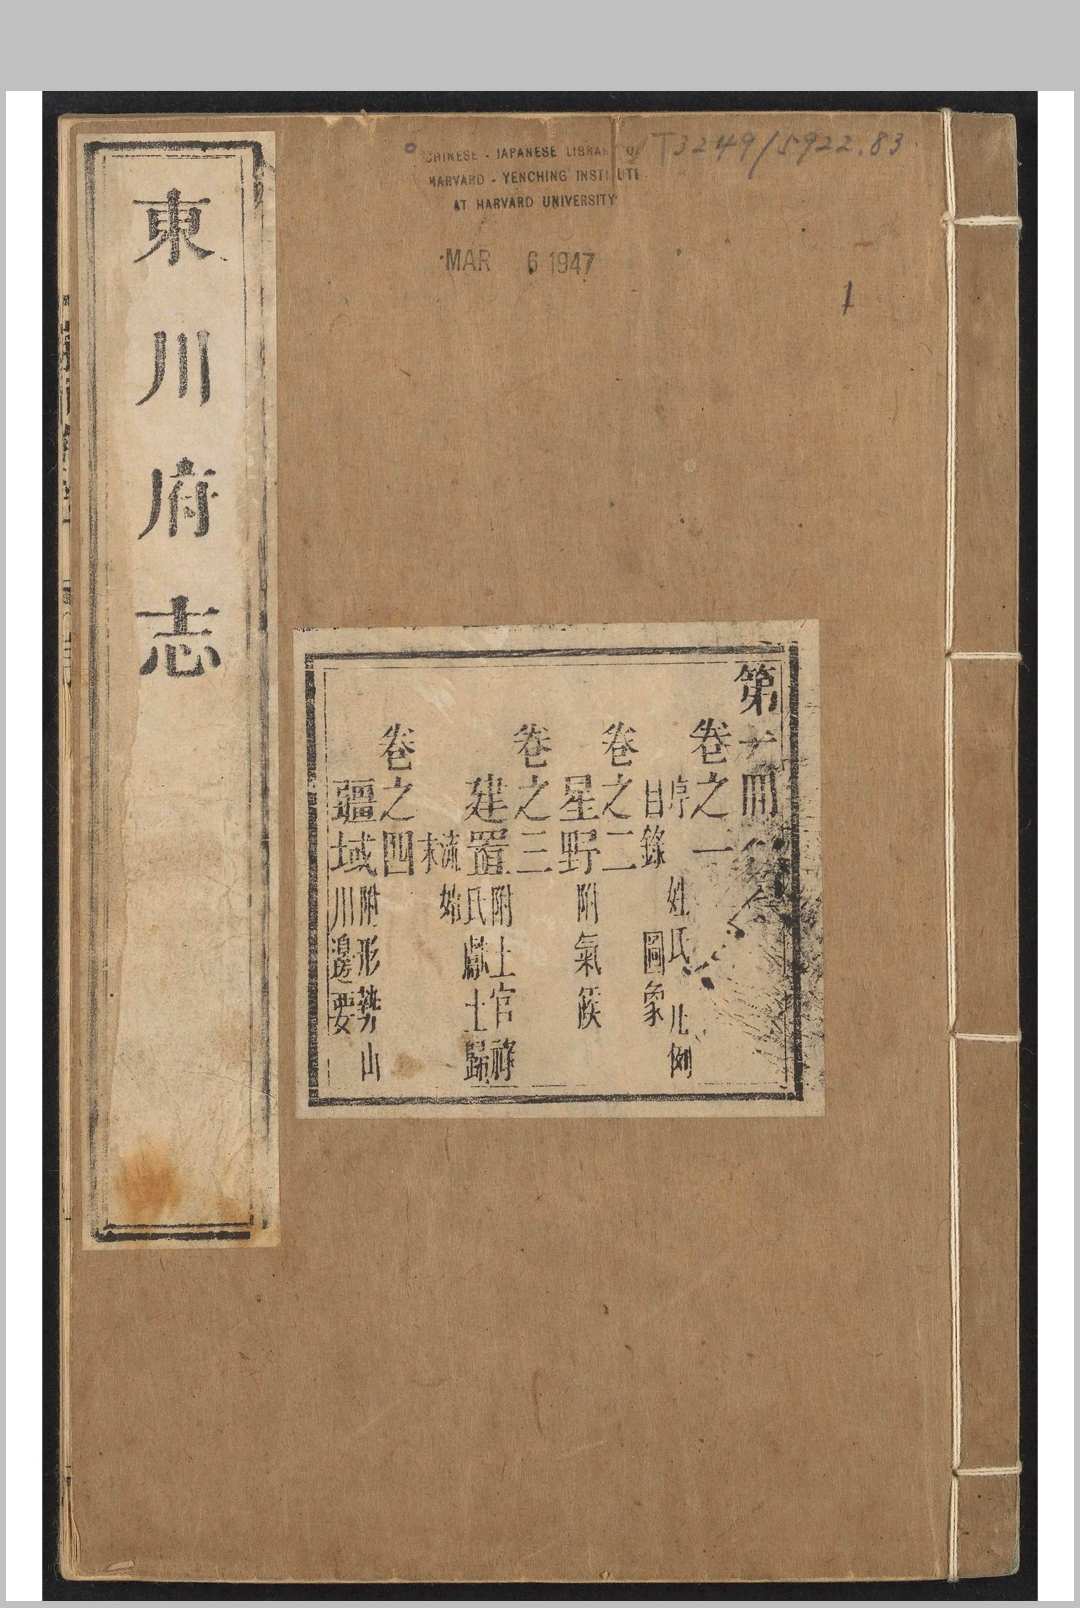 CHINESE - JAPANESE LIBRARY OF
HARVARD - YENCHING INSTITUTE
AT HARVARD UNIVERSITY
T3249/5922.83
MAR 6 1947
1
東川府志
第一冊
卷之一
序 姓氏 凡例
目錄 圖象
卷之二
星野 附氣候
卷之三
建置 附土官祿
氏獻土歸
流始
末
卷之四
疆域 附形勢山
川邊要